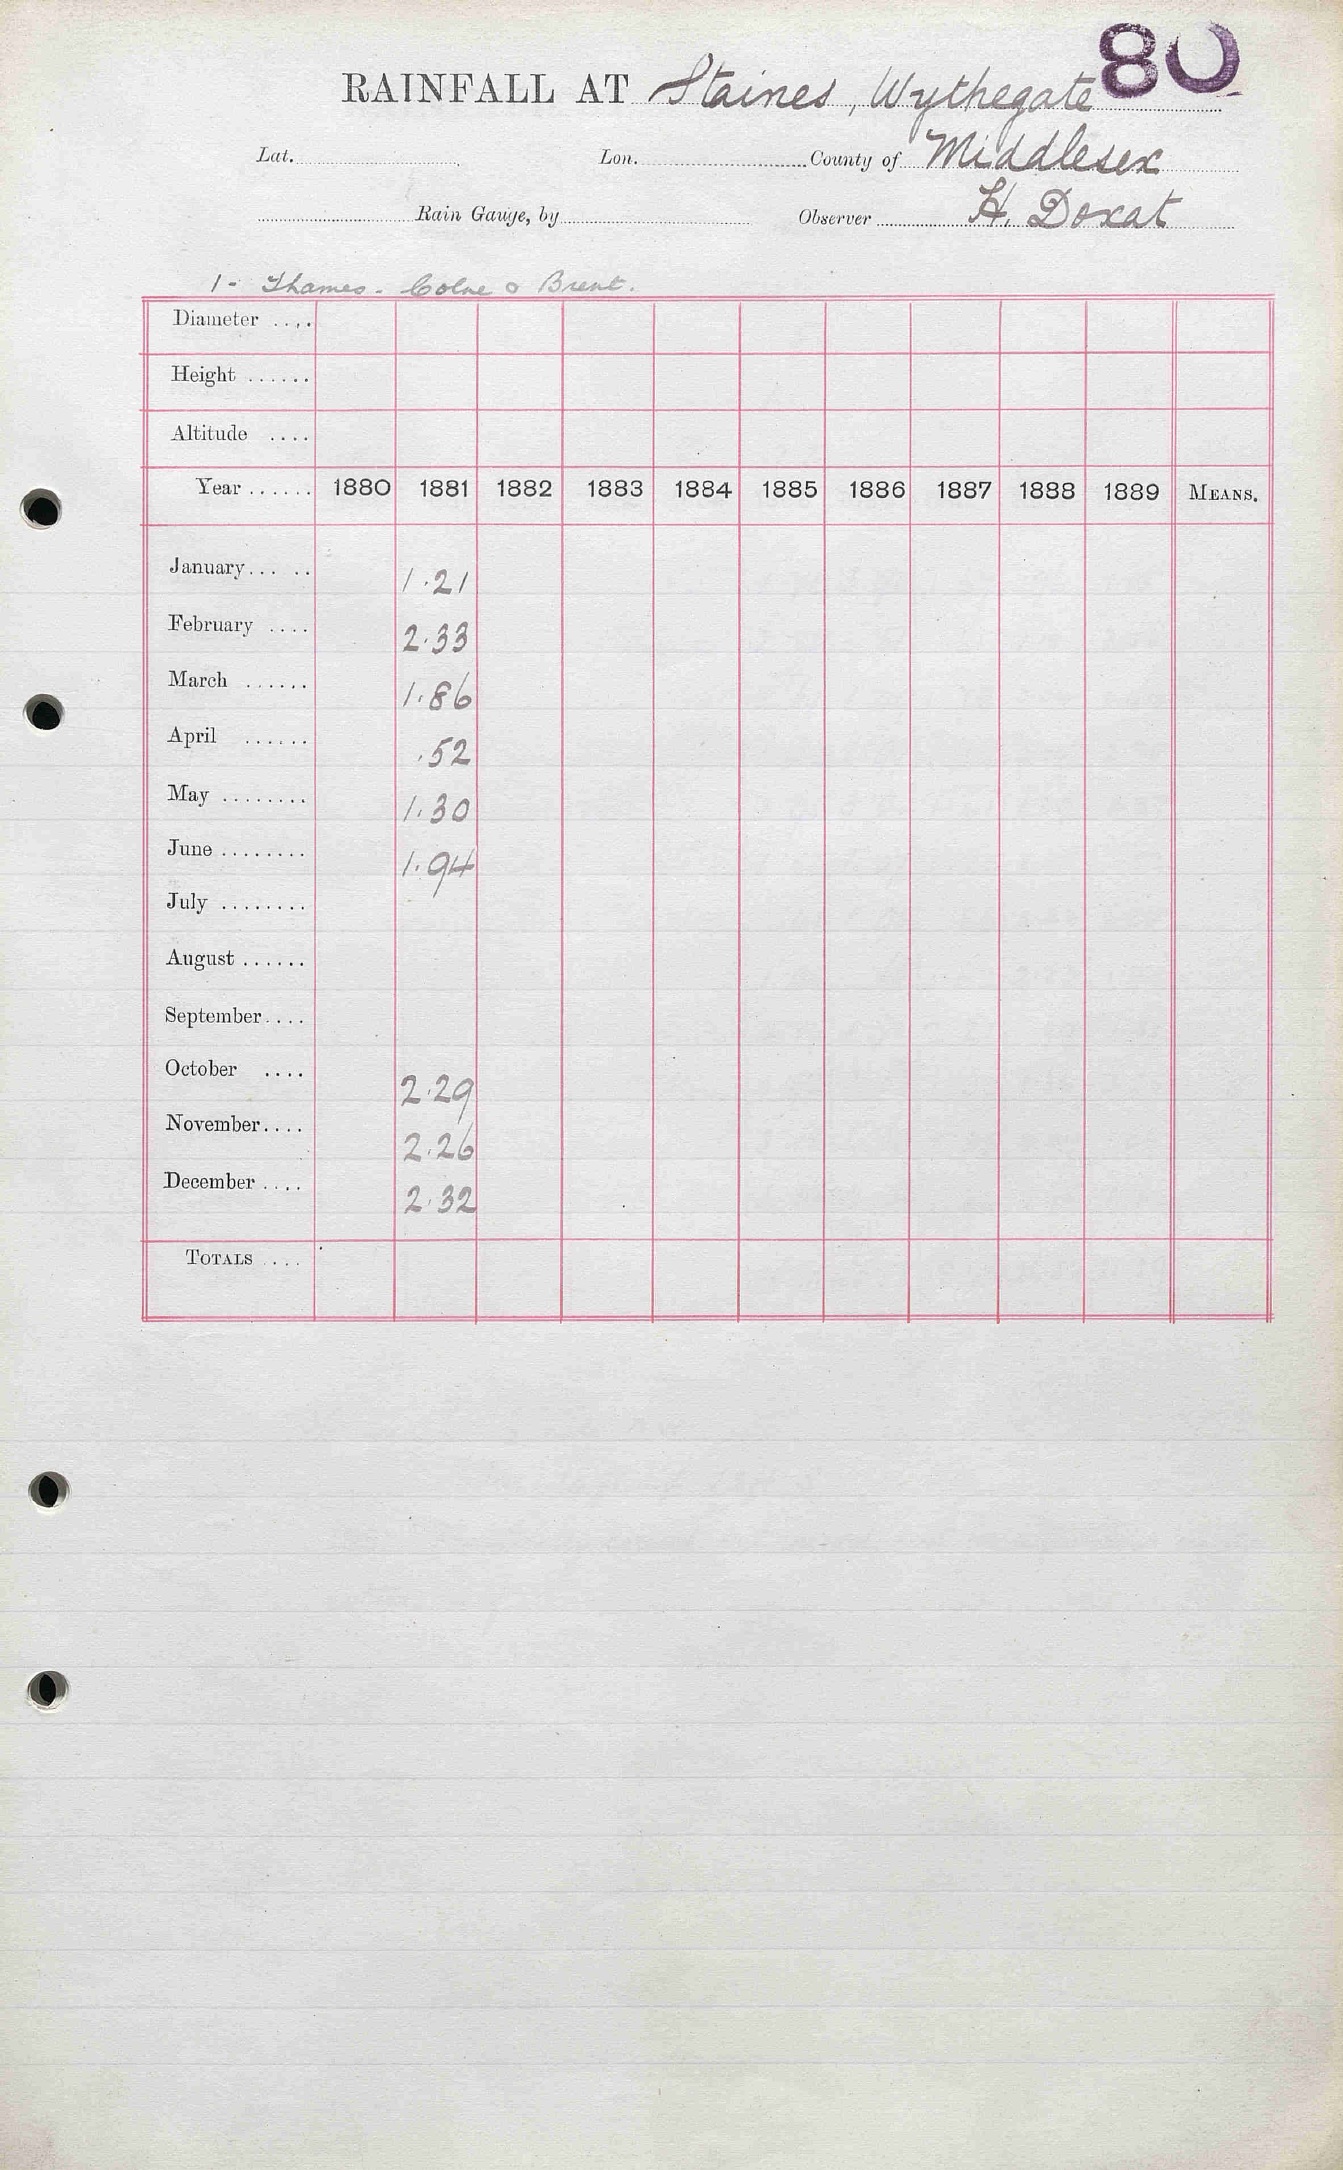 80
RAINFALL AT Staines, Wythegate
Lat. Lon. County of Middlesex
Rain Gauge, by Observer H. Doxat
1 - Thames - Colne & Brent.
Diameter ....
Height ......
Altitude ....
Year ...... 1880 1881 1882 1883 1884 1885 1886 1887 1888 1889 MEANS.
January... .. 1.21
February .... 2.33
March ...... 1.86
April ...... .52
May ........ 1.30
June ........ 1.94
July ........
August ......
September....
October .... 2.29
November.... 2.26
December .... 2.32
TOTALS ....